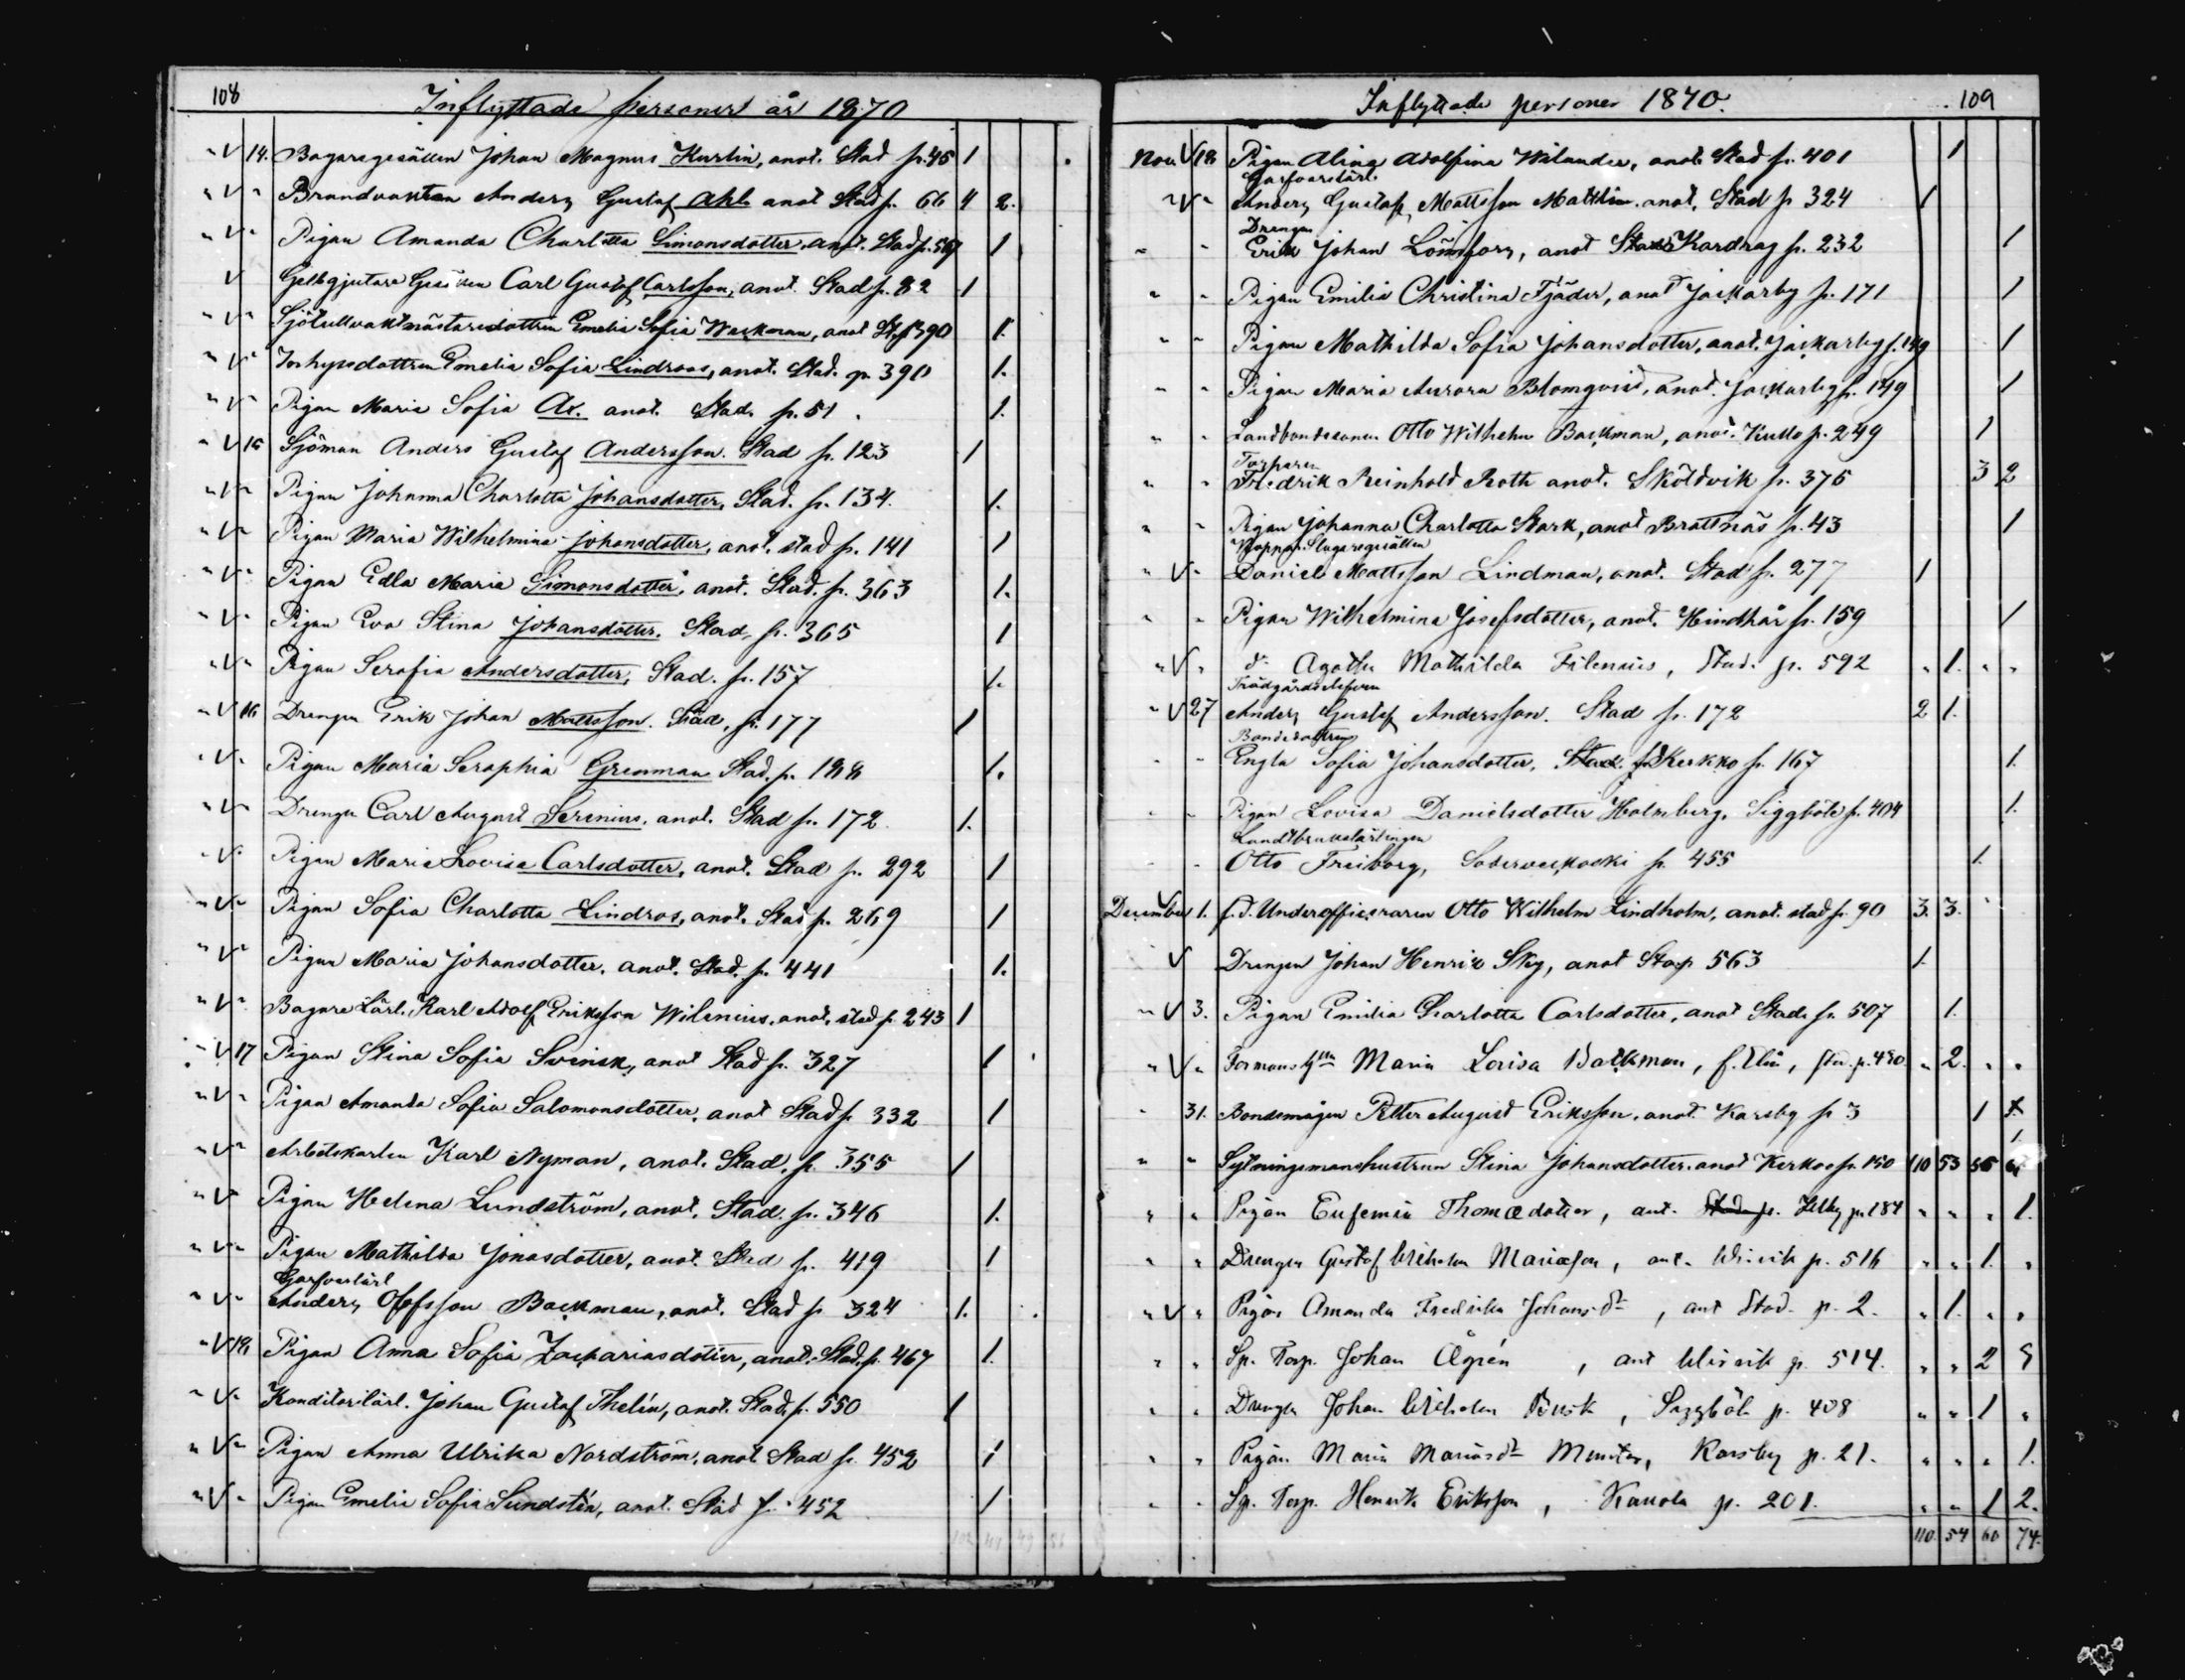 108
Inflyttade personer år 1870
" V 14. Bagaregesällen Johan Magnus Kurlin, anot. Stad p. 45 1
" V " Brandvakten Anders Gustaf Ahl anot Stad p. 66 4 2.
" V " Pigan Amanda Charlotta Simonsdotter, anot. Stad p. 567 1
V Gelbgjutare Gesällen Carl Gustaf Carlsson, anot. Stad p. 82 1
" V " Emelia Sofia Wackman, anot St. p 390 1.
" V " Inhysdottren Emelia Sofia Lindroos, anot. Stad. p. 390 1.
" V " Pigan Maria Sofia Ax. anot. Stad. p. 51. 1.
" V 15 Sjöman Anders Gustaf Andersson. Stad p. 123 1
" V " Pigan Johanna Charlotta Johansdotter, Stad. p. 134. 1.
" V " Pigan Maria Wilhelmina Johansdotter, anot. stad p. 141 1
" V " Pigan Edla Maria Simonsdotter, anot. Stad. p. 363 1.
" V " Pigan Eva Stina Johansdotter. Stad, p. 365 1
" V " Pigan Serafia Andersdotter, Stad. p. 157 1.
" V 16 Drengen Erik Johan Mattsson. Stad, p. 177 1
" V " Pigan Maria Seraphia Grenman Stad. p. 188 1.
" V " Drengen Carl August Serenius. anot. Stad p. 172. 1.
" V " Pigan Maria Lovisa Carlsdotter, anot. Stad p. 292 1
" V " Pigan Sofia Charlotta Lindros, anot. Stad p. 269 1
" V " Pigan Maria Johansdotter. anot. Stad. p. 441 1.
" V " Bagare Lärl. Karl Adolf Eriksson Wilenius. anot. stad p. 243 1
" V 17 Pigan Stina Sofia Svinsk, anot Stad p. 327 1
" V " Pigan Amanda Sofia Salomonsdotter, anot Stad p. 332 1
" V " Arbetskarlen Karl Nyman, anot. Stad, p. 355 1
" V " Pigan Helena Lundström, anot. Stad. p. 346 1.
" V " Pigan Mathilda Jonasdotter, anot. Stad p. 419 1
Garfvarlärl
" V " Anders Olofsson Backman, anot. Stad p 324 1.
" V 18 Pigan Anna Sofia Zachariasdotter, anot. Stad. p. 467 1.
" V " Konditorlärl. Johan Gustaf Thelén, anot. Stad, p. 550 1
" V " Pigan Anna Ulrika Nordström, anot Stad p. 452 1
" V " Pigan Emelie Sofia Sundstén, anot. Stad p. 452 1
Inflyttade personer 1870. 109
Nov. V 18 Pigan Alina Adolfina Wilander, anot. Stad p. 401 1
Garfvarelärl.
" V " Anders Gustaf Mattsson Matthlin. anot. Stad p 324 1
Drengen
" " Erik Johan Lönnfors, anot Stad Kardrag p. 232 1
" " Pigan Emilia Christina Fjäder, anot Jackarby p. 171 1
" " Pigan Mathilda Sofia Johansdotter, anot. Jackarby p. 149 1
" " Pigan Maria Aurora Blomqvist, anot. Jackarby p. 149 1
" " Landbondesonen Otto Wilhelm Backman, anot. Kullo p. 249 1
Torparen
" " Fredrik Reinhold Roth anot. Sköldvik p. 375 3 2
" " Pigan Johanna Charlotta Stark, anot Brattnäs p. 43 1
Kopparslagaregesällen
" V " Daniel Mattsson Lindman, anot. Stad p. 277 1
" " Pigan Wilhelmina Josefsdotter, anot. Hindhår p. 159 1
" V " d:o Agatha Mathilda Filenius, Stad. p. 592 " 1. " "
Trädgårdseleven
" V 27 Anders Gustaf Andersson. Stad p. 172 2 1.
Bondedottren
" " Engla Sofia Johansdotter. Stad. p Kerkko p. 167 1.
" " Pigan Lovisa Danielsdotter Holmberg. Siggböle p. 404 1.
Landtbrukslärlingen
" " Otto Freiborg, Söderveckoski p. 455 1.
December 1. f.d. Underofficeraren Otto Wilhelm Lindholm, anot. stad p. 90 3. 3.
V Drengen Johan Henrik Sky, anot Sta p 563 1.
" V 3. Pigan Emilia Charlotta Carlsdotter, anot Stad p. 507 1.
" V " Formansh:n Maria Lovisa Backman, f. Elin, stad. p. 480. " 2. " "
" 31. Bondemågen Petter August Eriksson. anot. Karsby p 3 1
" " Sytningsmanshustrun Stina Johansdotter. anot Kerkoo p. 150 110 53 56
" " Pigan Eufemia Thomædotter, ant. Stad p. Illby p. 184 " " " 1.
" " Drengen Gustaf Wilhelm Mariæson, ant. p. 516 " " 1. "
" V " Pigan Amanda Fredrika Johansdr, ant Stad p. 2. " 1. " "
" " Sp. Torp. Johan Ågrén, ant p. 514. " " 2
" " Drengen Johan Wilhelm Busk, Siggböle p. 408 " " 1 "
" " Pigan Maria Mariasdr Munter, Karsby p. 21. " " " 1.
" " Sp. Torp. Henrik Eriksson, p. 201. " " 1 2.
110. 54 60 74.